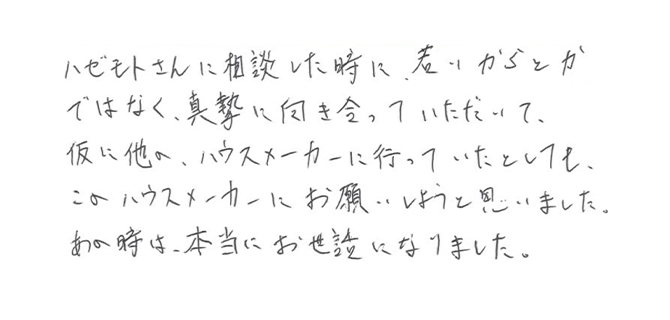 ハゼモトさんに相談した時に、若いからとか
ではなく、真摯に向き合っていただいて、
仮に他の、ハウスメーカーに行っていたとしても、
このハウスメーカーにお願いしようと思いました。
あの時は、本当にお世話になりました。